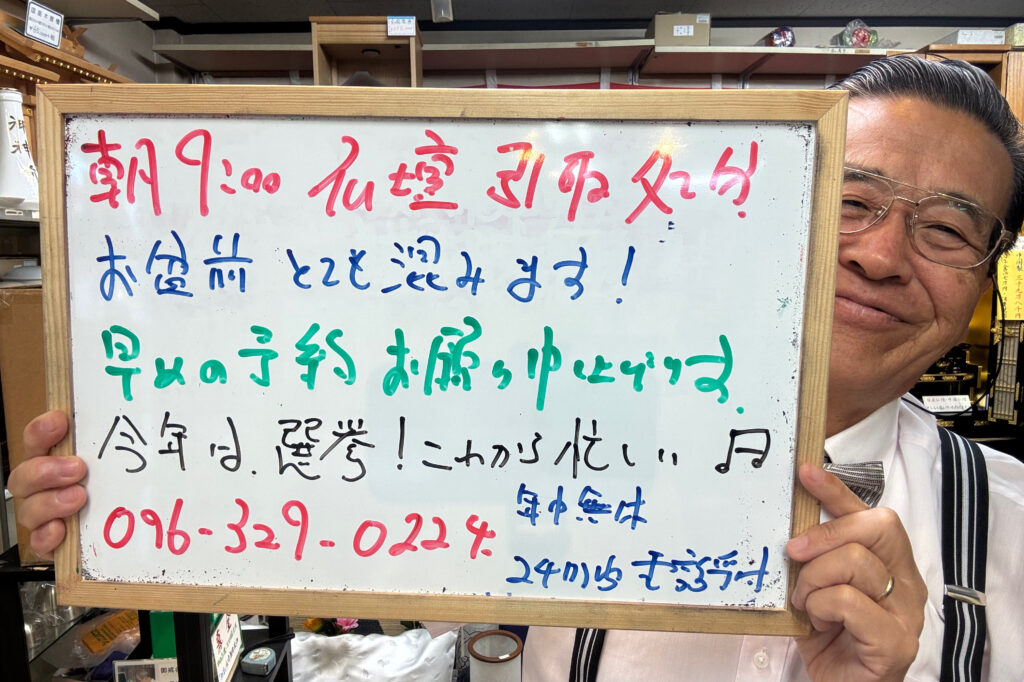 朝9:00 仏壇 引取 処分
お盆前 とても混みます!
早めの予約 お願い申し上げます.
今年は、選挙!これから忙しい ♫
096-329-0224
年中無休
24時間 電話受付